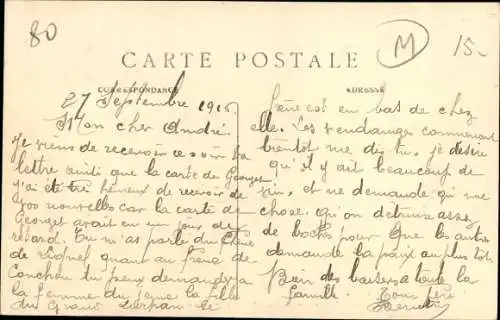 80
M
15-
CARTE POSTALE
CORRESPONDANCE
ADRESSE
27 Septembre 1915
Mon cher André.
Je viens de recevoir ce soir ta
lettre ainsi que la carte de Georges
j'ai été très heureux de recevoir de
vos nouvelles car la carte de
Georget avait eu un jour de
retard. Tu m'as parlé du Chêne
de quant au frêne de
tu peux demander a
la femme du la fille
du Grand
frêne est en bas de chez
elle. Les vendanges commencent
bientôt me dis tu, je désire
qu'il y ait beaucoup de
vin, et ne demande qu'une
chose qu'on détruise assez
de boches pour que les autres
demande la paix au plus tôt
Bien des baisers a toute la
famille. Ton père